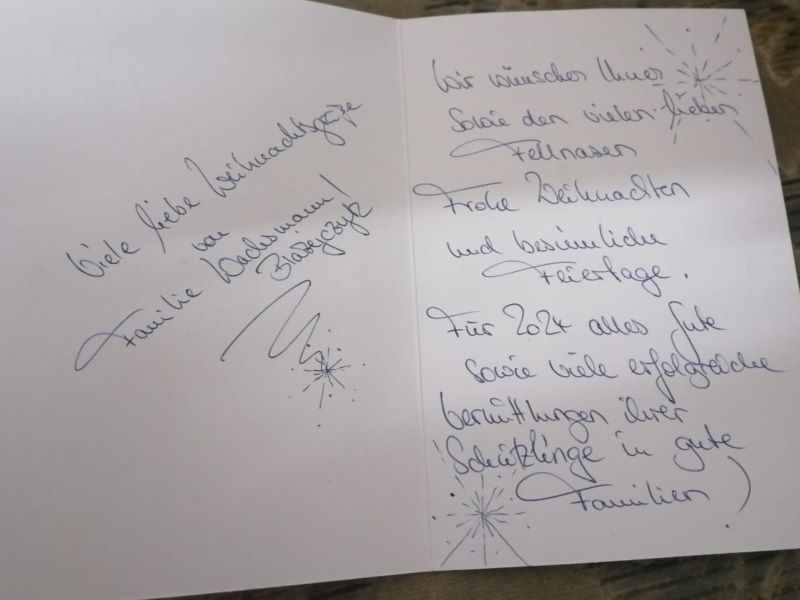 Viele liebe Weihnachtsgrüße
von
Familie Wachsmann/
Błażejczyk
Wir wünschen Ihnen
sowie den vielen lieben
Fellnasen
Frohe Weihnachten
und besinnliche
Feiertage.
Für 2024 alles Gute
sowie viele erfolgreiche
Vermittlungen ihrer
Schützlinge in gute
Familien )